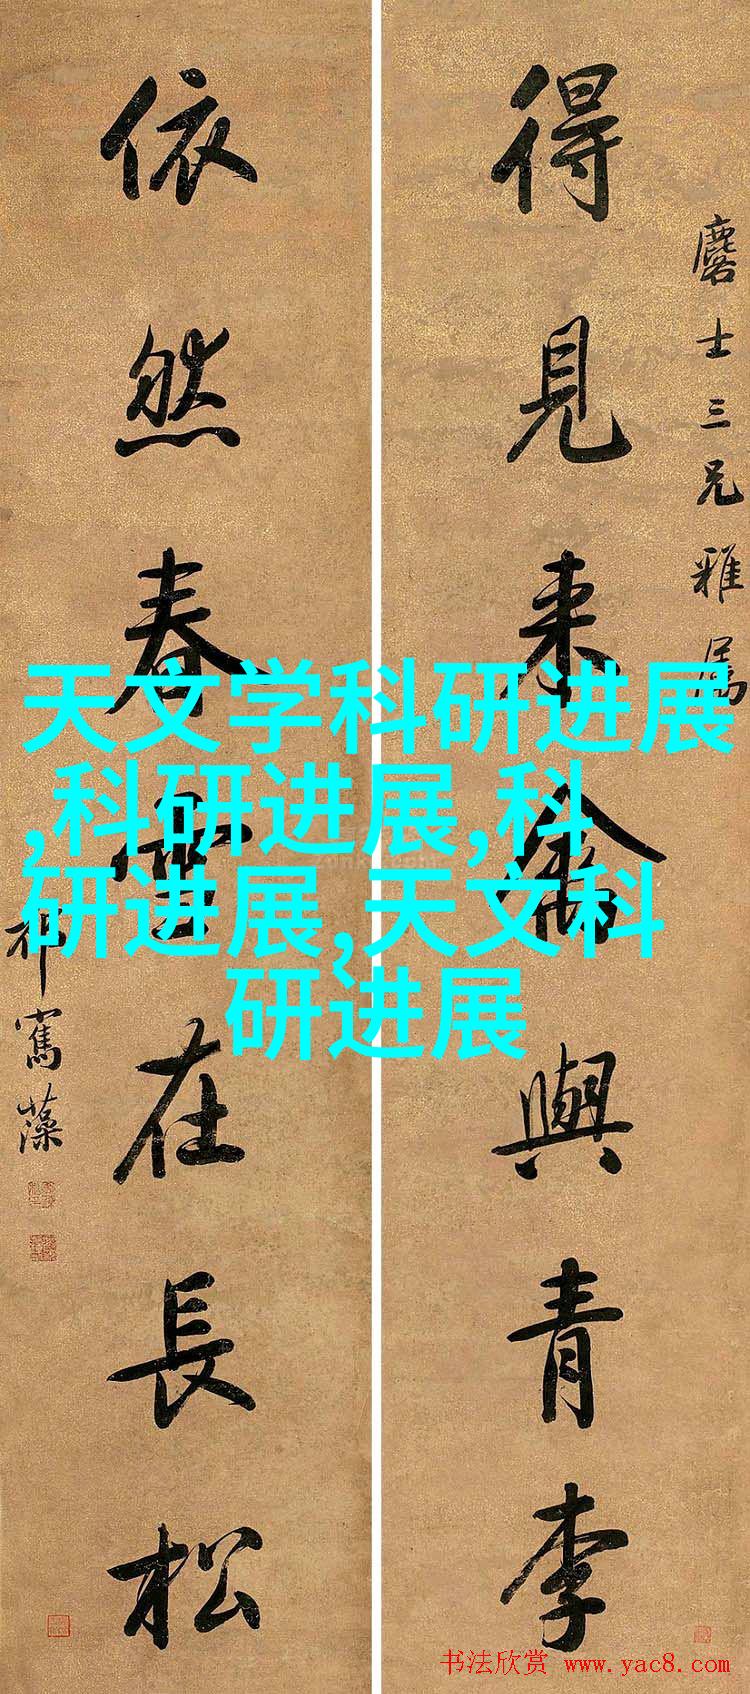 得見來禽與青李
麐士三兄雅屬
依然春雪在長松
祁寯藻
天文学科研进展
,科研进展,科
研进展,天文科
研进展
书法欣赏 www.yac8.com